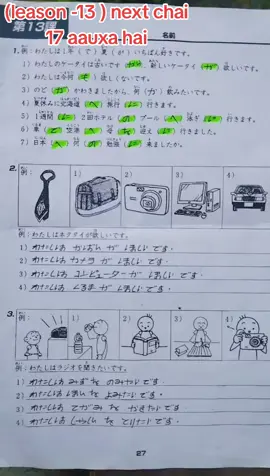 (leason -13 ) next chai
17 aauxa hai
第13課
名前
1. 例：わたしは1年（で）夏（が）いちばん好きです。
1）わたしのケータイは古いです（から）、新しいケータイ（が）欲しいです。
2）わたしは今何（も）欲しくないです。
3）のど（が）かわきましたから、何（か）飲みたいです。
4）夏休みに北海道（へ）旅行（に）行きます。
5）1週間（に）2回ホテル（の）プール（へ）泳ぎ（に）行きます。
6）車（で）空港（へ）母（を）迎え（に）行きました。
7）日本（へ）何（の）勉強（に）来ましたか。
2. 例：
1）
2）
3）
4）
例：わたしはネクタイが欲しいです。
1）わたしは かばん が ほしい です。
2）わたしは カメラ が ほしい です。
3）わたしは コンピューター が ほしい です。
4）わたしは くるま が ほしい です。
3. 例：
1）
2）
3）
4）
例：わたしはラジオを聞きたいです。
1）わたしは みず を のみたい です。
2）わたしは ほん を よみたい です。
3）わたしは てがみ を かきたい です。
4）わたしは しゃしん を とりたい です。
27